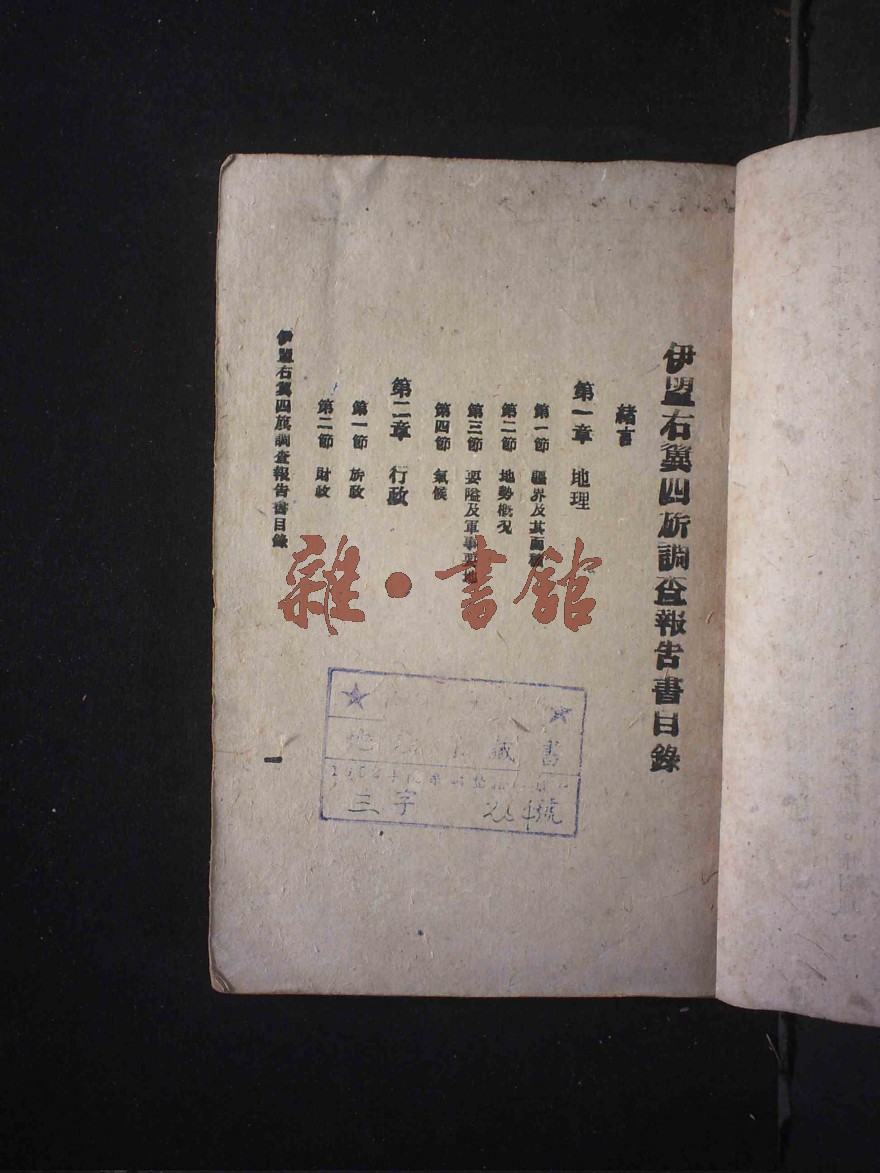 伊盟右翼四旂調查報告書目錄
緒言
第一章 地理
第一節 疆界及其面積
第二節 地勢概况
第三節 要隘及軍事要地
第四節 氣候
第二章 行政
第一節 旂政
第二節 財政
伊盟右翼四旂調查報告書目錄
一
雜·書館
藏書
三字 號